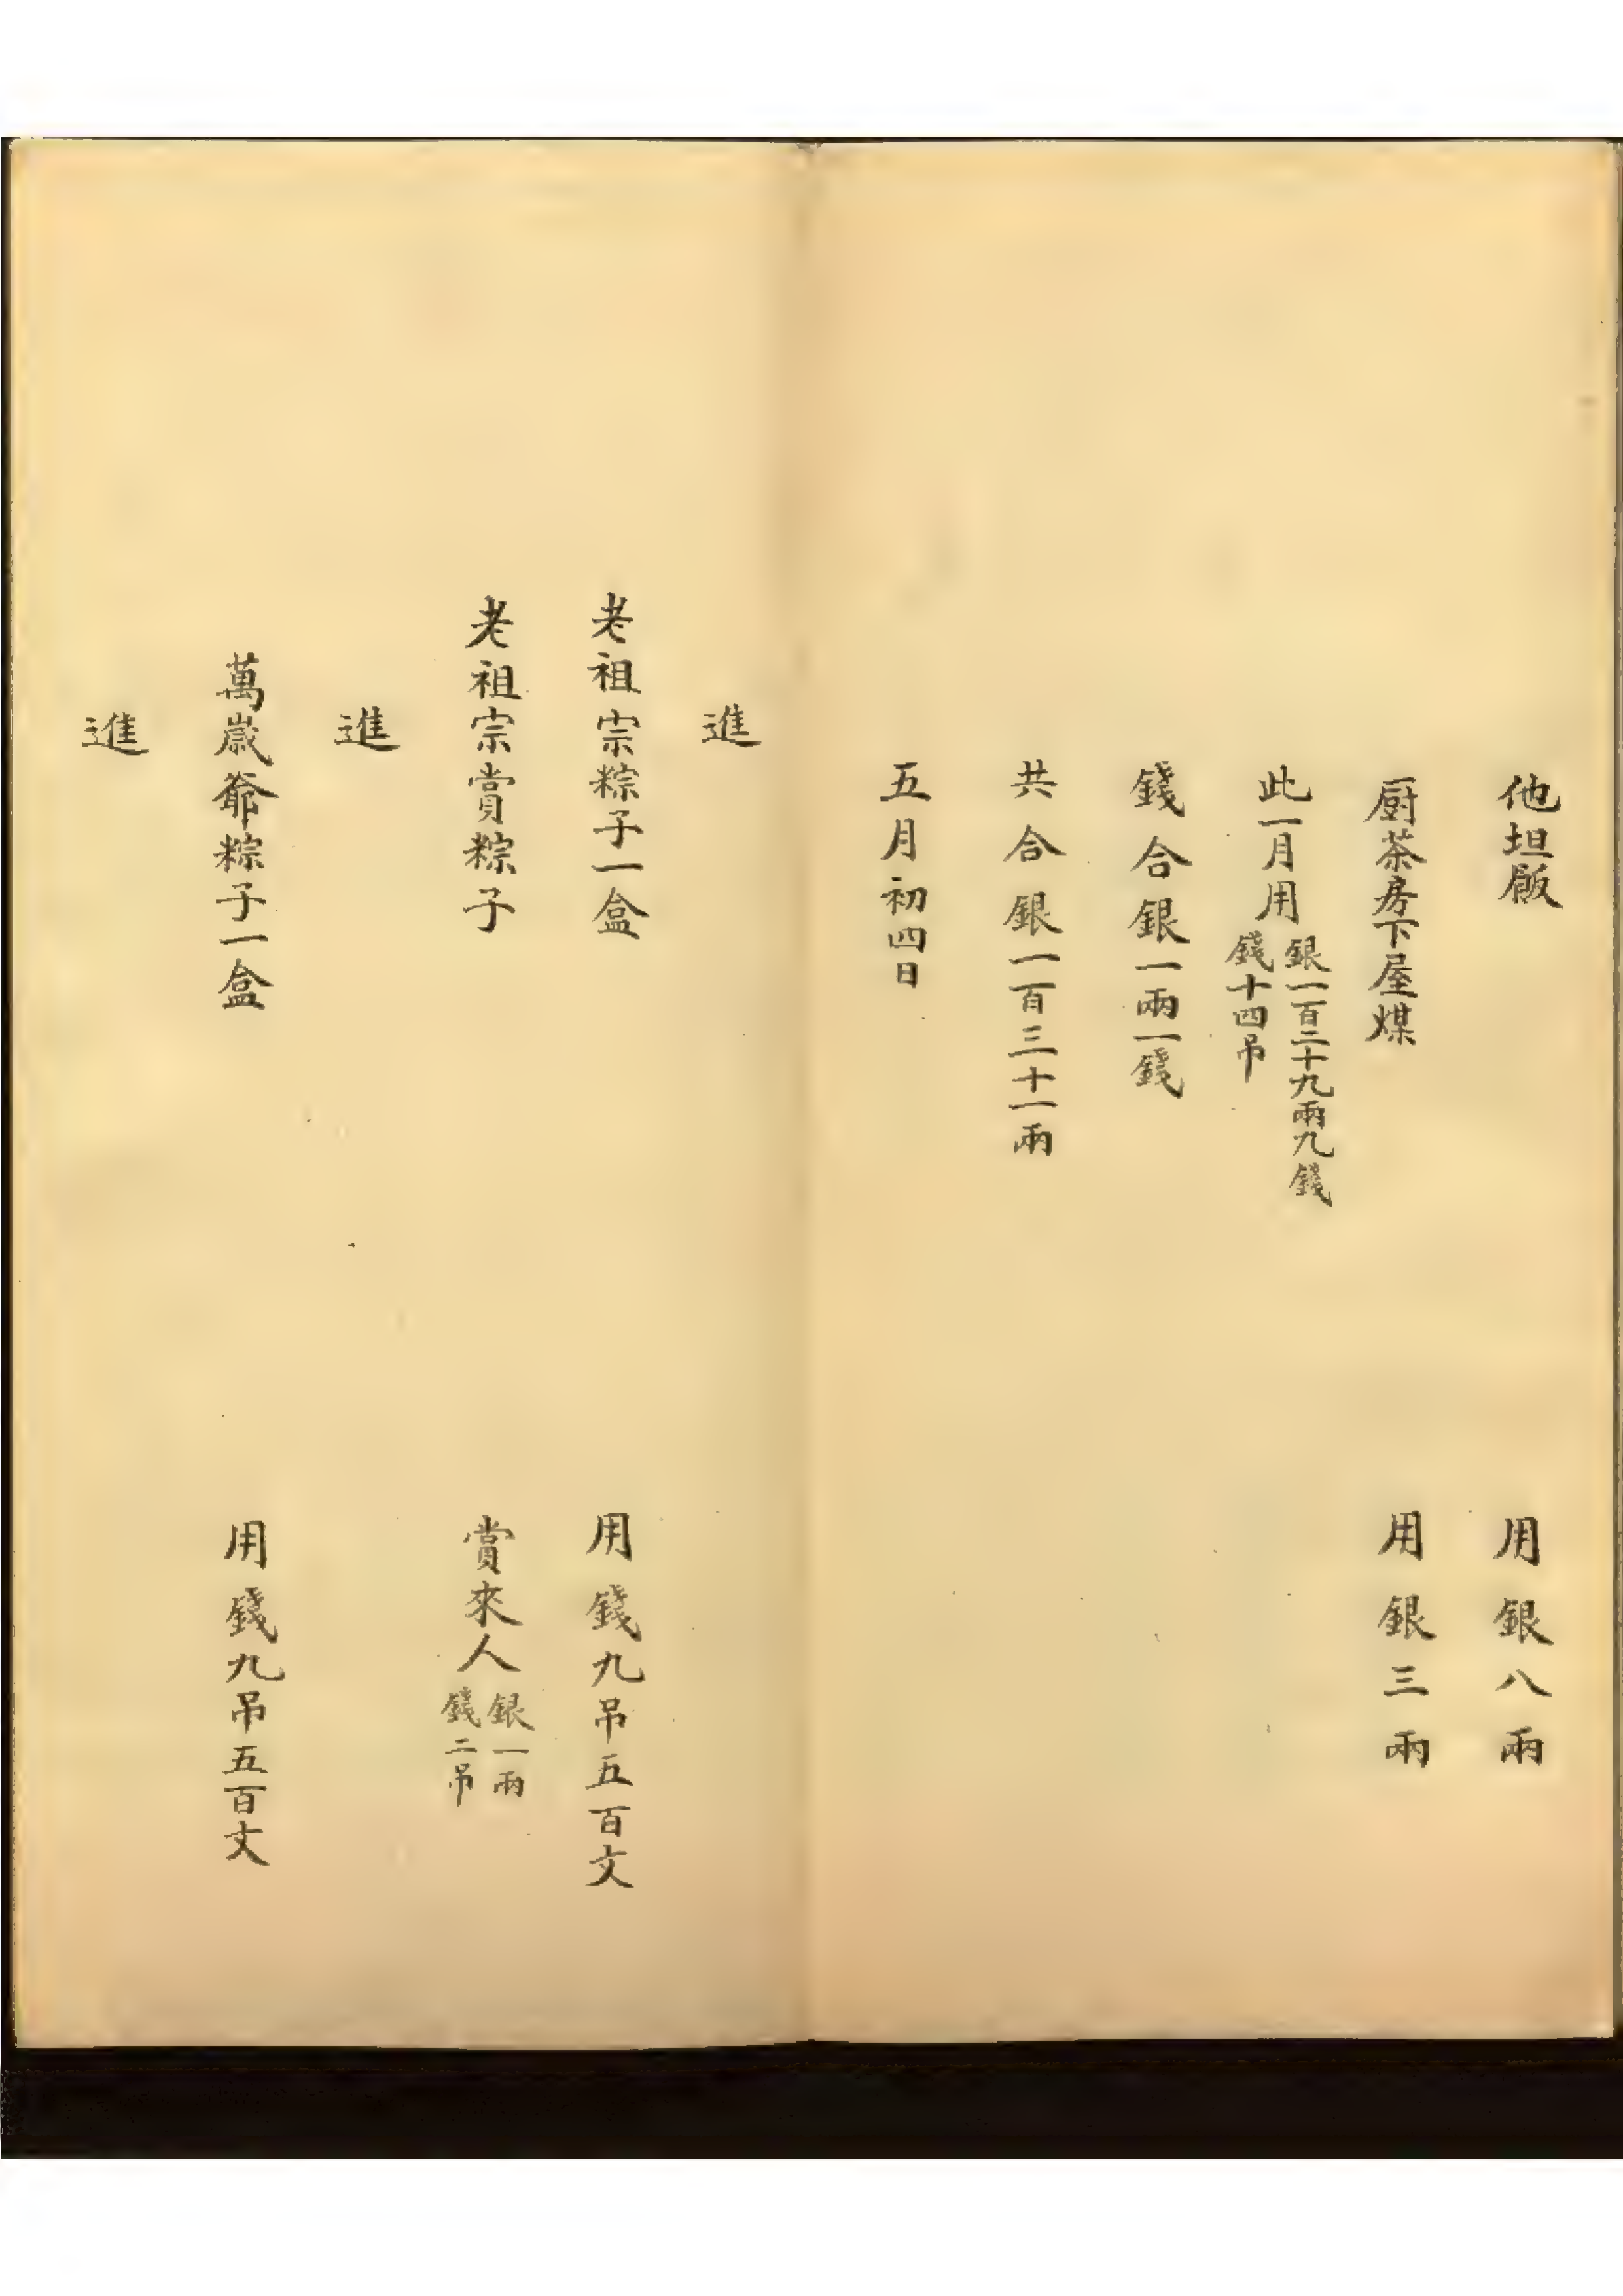 他坦飯 用銀八兩
厨茶房下屋煤 用銀三兩
此一月用 銀一百二十九兩九錢 錢十四吊
錢合銀一兩一錢
共合銀一百三十一兩
五月初四日
進
老祖宗粽子一盒 用錢九吊五百文
老祖宗賞粽子 賞來人 銀一兩 錢二吊
進
萬歲爺粽子一盒 用錢九吊五百文
進